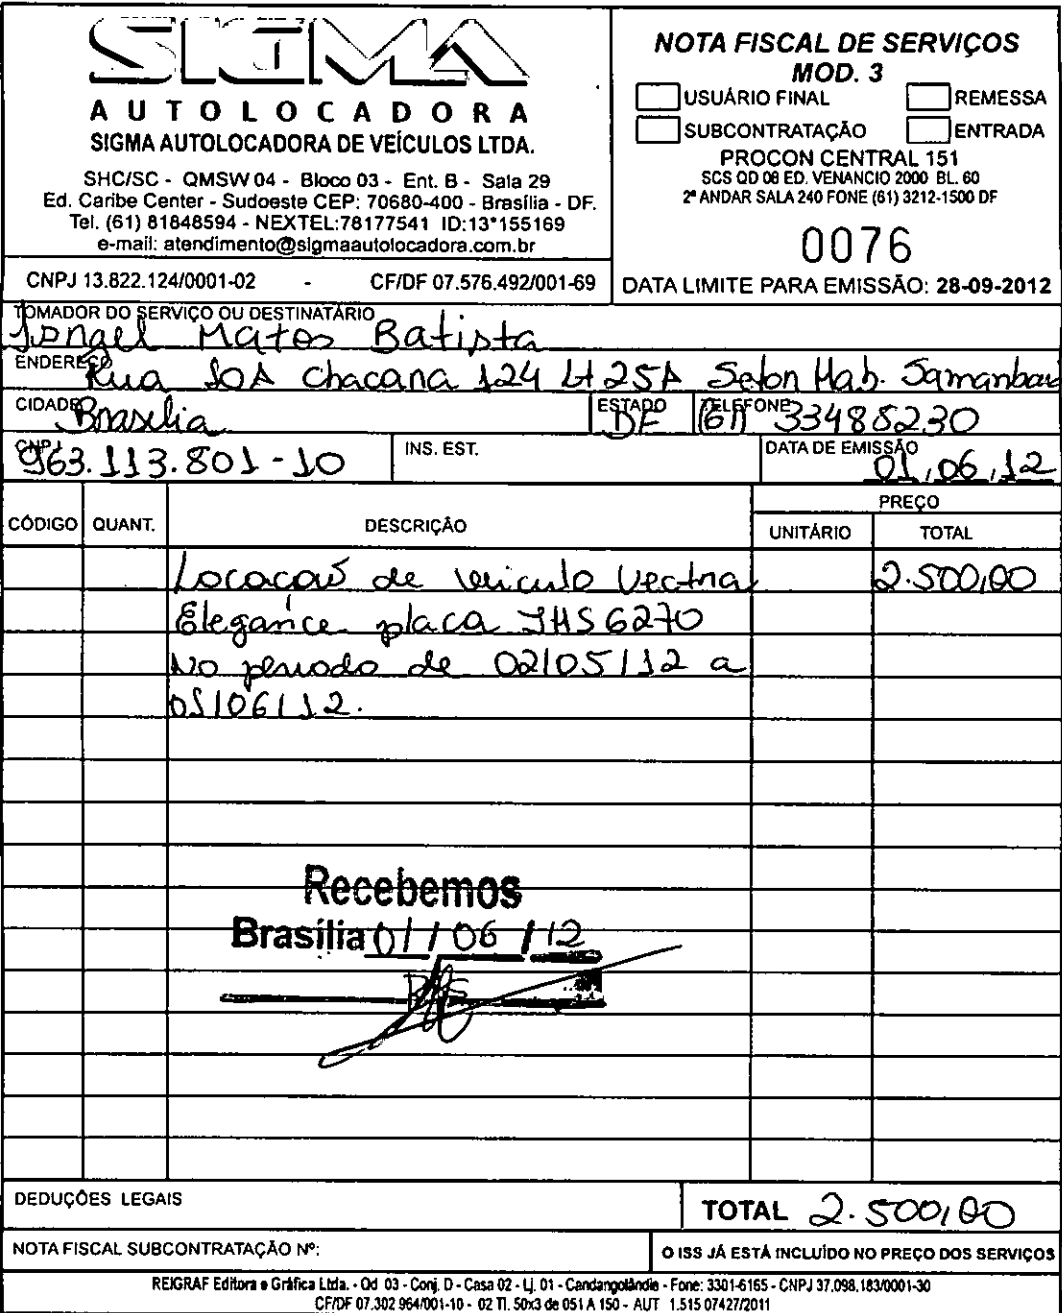 SIGMA
AUTOLOCADORA
SIGMA AUTOLOCADORA DE VEÍCULOS LTDA.
SHC/SC - QMSW 04 - Bloco 03 - Ent. B - Sala 29
Ed. Caribe Center - Sudoeste CEP: 70680-400 - Brasília - DF.
Tel. (61) 81848594 - NEXTEL:78177541 ID:13*155169
e-mail: atendimento@sigmaautolocadora.com.br
CNPJ 13.822.124/0001-02 - CF/DF 07.576.492/001-69
NOTA FISCAL DE SERVIÇOS
MOD. 3
USUÁRIO FINAL REMESSA
SUBCONTRATAÇÃO ENTRADA
PROCON CENTRAL 151
SCS QD 08 ED. VENANCIO 2000 BL. 60
2º ANDAR SALA 240 FONE (61) 3212-1500 DF
0076
DATA LIMITE PARA EMISSÃO: 28-09-2012
TOMADOR DO SERVIÇO OU DESTINATÁRIO
Matos Batista
ENDEREÇO Rua 10A Chacara 124 Lt 25A Seton Hab. Samambaia
CIDADE Brasilia ESTADO DF TELEFONE (61) 33488230
CNPJ 963.113.801-10 INS. EST. DATA DE EMISSÃO 01,06,12
CÓDIGO QUANT. DESCRIÇÃO PREÇO
UNITÁRIO TOTAL
Locacaõ de veiculo Vectra 2.500,00
Elegance placa JHS6270
No periodo de 02/05/12 a
01/06/12.
Recebemos
Brasília 01/06/12
DEDUÇÕES LEGAIS TOTAL 2.500,00
NOTA FISCAL SUBCONTRATAÇÃO Nº: O ISS JÁ ESTÁ INCLUÍDO NO PREÇO DOS SERVIÇOS
REIGRAF Editora e Gráfica Ltda. - Qd 03 - Conj. D - Casa 02 - Lj. 01 - Candangolândie - Fone: 3301-6165 - CNPJ 37.098.183/0001-30
CF/DF 07.302 964/001-10 - 02 Tl. 50x3 de 051 A 150 - AUT 1.515 07427/2011